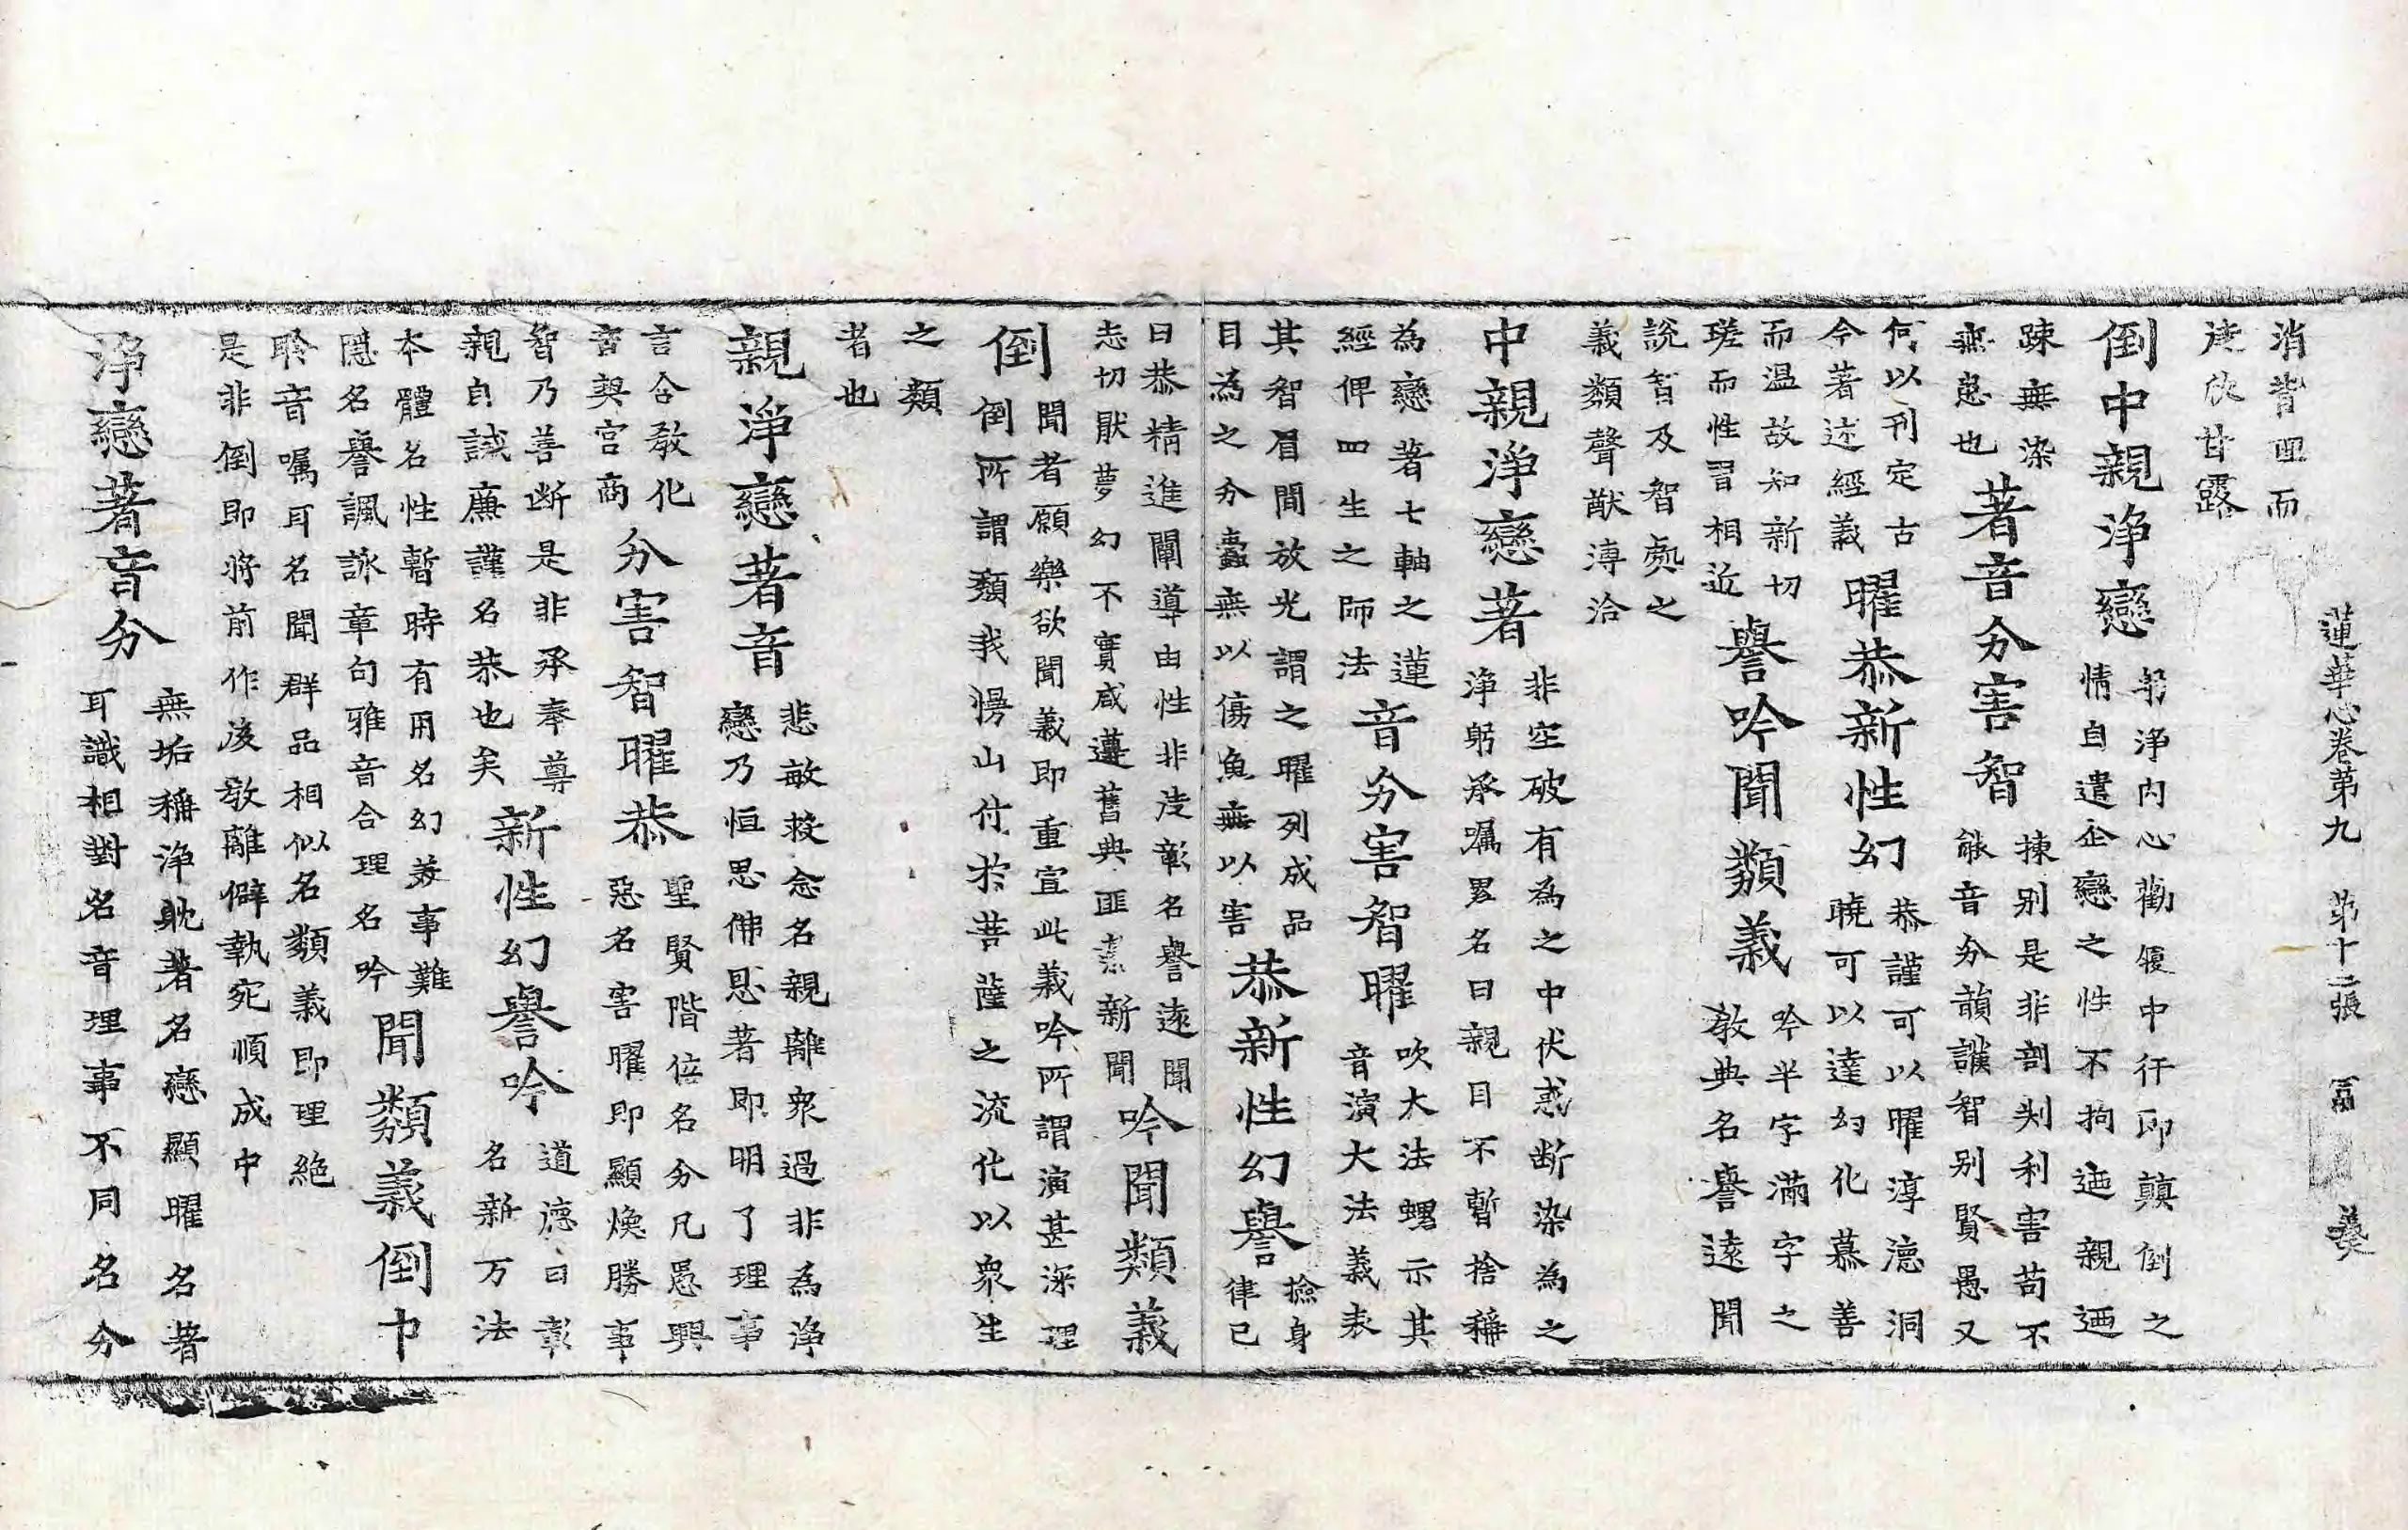 蓮華心卷第九 第十二張 冨 㳟
消皆迴而
達依甘露
倒中親淨戀
躬淨內心勸履中行卬顛倒之
情自遣企戀之性不拘迤親迺
踈無染
無惡也
著音分害智
揀别是非剖判利害苟不
能音分韻譏智别賢愚又
何以刊定古
今著述經義
曜恭新性幻
恭謹可以曜淳德洞
曉可以達幻化慕善
而温故知新切
瑳而性習相近
譽吟聞類義
吟半字滿字之
教典名譽遠聞
說智及智處之
義類聲猷溥洽
中親淨戀著
非空破有為之中伏惑断染為之
淨躬承囑累名曰親目不暫捨稱
為戀著七軸之蓮
經俾四生之師法
音分害智曜
吹大法蠃示其
音演大法義表
其智眉間放光謂之曜列成品
目為之分蠹無以傷魚無以害
恭新性幻譽
撿身
律己
曰恭精進闡導由性非淺彰名譽遠聞
志切猒夢幻不實咸遵舊典匪紊新聞
吟聞類義
倒
聞者願樂欲聞義即重宣此義吟所謂演甚深理
倒所謂類我慢山付於菩薩之流化以衆生
之類
者也
親淨戀著音
悲敏救念名親離衆過非為淨
戀乃恒思佛恩著即明了理事
言合教化
音契宫商
分害智曜恭
聖賢階位名分凡愚興
惡名害曜即顯煥勝事
智乃善断是非承奉尊
親自誠廉謹名恭也矣
新性幻譽吟
道德曰彰
名新万法
本體名性暫時有用名幻羙事難
隱名譽諷詠章句雅音合理名吟
聞類義倒中
聆音囑耳名聞群品相似名類義即理絶
是非倒即將前作後教離僻執宛順成中
淨戀著音分
無垢稱淨躭著名戀顯曜名著
耳識相對名音理事不同名分